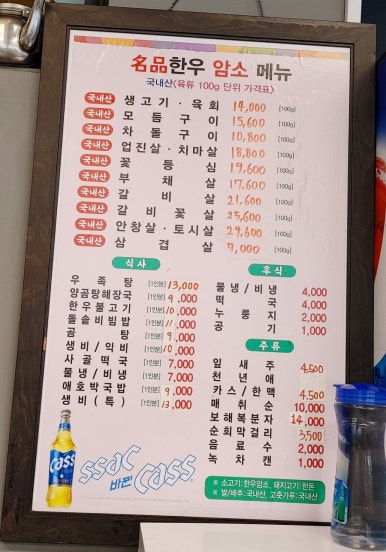 名品한우 암소 메뉴
국내산<육류 100g 단위 가격표>
국내산 생고기·육회 14,000 [100g]
국내산 모듬구이 15,600 [100g]
국내산 차돌구이 10,800 [100g]
국내산 업진살·치마살 18,800 [100g]
국내산 꽃등심 19,600 [100g]
국내산 부채살 17,600 [100g]
국내산 갈비살 21,600 [100g]
국내산 갈비꽃살 25,600 [100g]
국내산 안창살·토시살 29,600 [100g]
국내산 삼겹살 7,000 [100g]
식사
우족탕 [1인분] 13,000
양곰탕해장국 [1인분] 9,000
한우불고기 [1인분] 10,000
돌솥비빔밥 [1인분] 11,000
곰탕 [1인분] 9,000
생비/익비 [1인분] 10,000
사골떡국 [1인분] 7,000
물냉/비냉 [1인분] 7,000
애호박국밥 [1인분] 9,000
생비(특) [1인분] 13,000
후식
물냉/비냉 4,000
떡국 4,000
누룽지 2,000
공기 1,000
주류
잎새주 4,500
천년애
카스/한맥 4,500
매취순 10,000
보해복분자 14,000
순희막걸리 3,500
음료수 2,000
녹차캔 1,000
Cass
ssac 바꾼 Cass
※ 소고기:한우암소, 돼지고기:한돈
※ 쌀/배추:국내산, 고춧가루:국내산